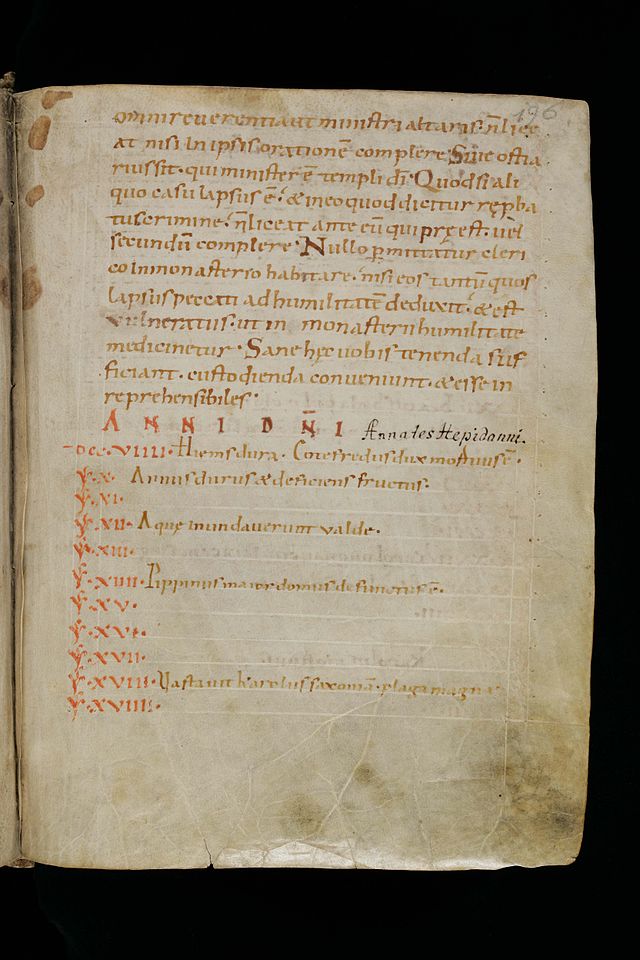 196
omni reuerentia ut ministri altaris. n̄ lice
at nisi in ipsis orationē complere. Siue ostia
rius sit. qui minister ē templi dī. Quod si ali
quo casu lapsus ē. & in eo quod dicitur rep̱ba
tus crimine. n̄ liceat ante eū qui pręest. uel
secundū complere. Nullo ꝑmittatur cleri
co in monasterio habitare. nisi eos tantū quos
lapsus peccati ad humilitatē deduxit. & est
uulneratus. ut in monasterii humilitate
medicinetur. Sane hęc uobis tenenda suf
ficiant. custodienda conueniunt. & esse in
reprehensibiles.
ANNI DN̄I Annales Hepidanni.
DCC.VIIII. Hiems dura. Cotesredus dux mortuus ē.
X. Annus durus & deficiens fructus.
XI.
XII. Aquę inundauerunt valde.
XIII.
XIIII. Pippinus maior domus defunctus ē.
XV.
XVI.
XVII.
XVIII. Uastauit karolus saxoniā. plaga magna
XVIIII.